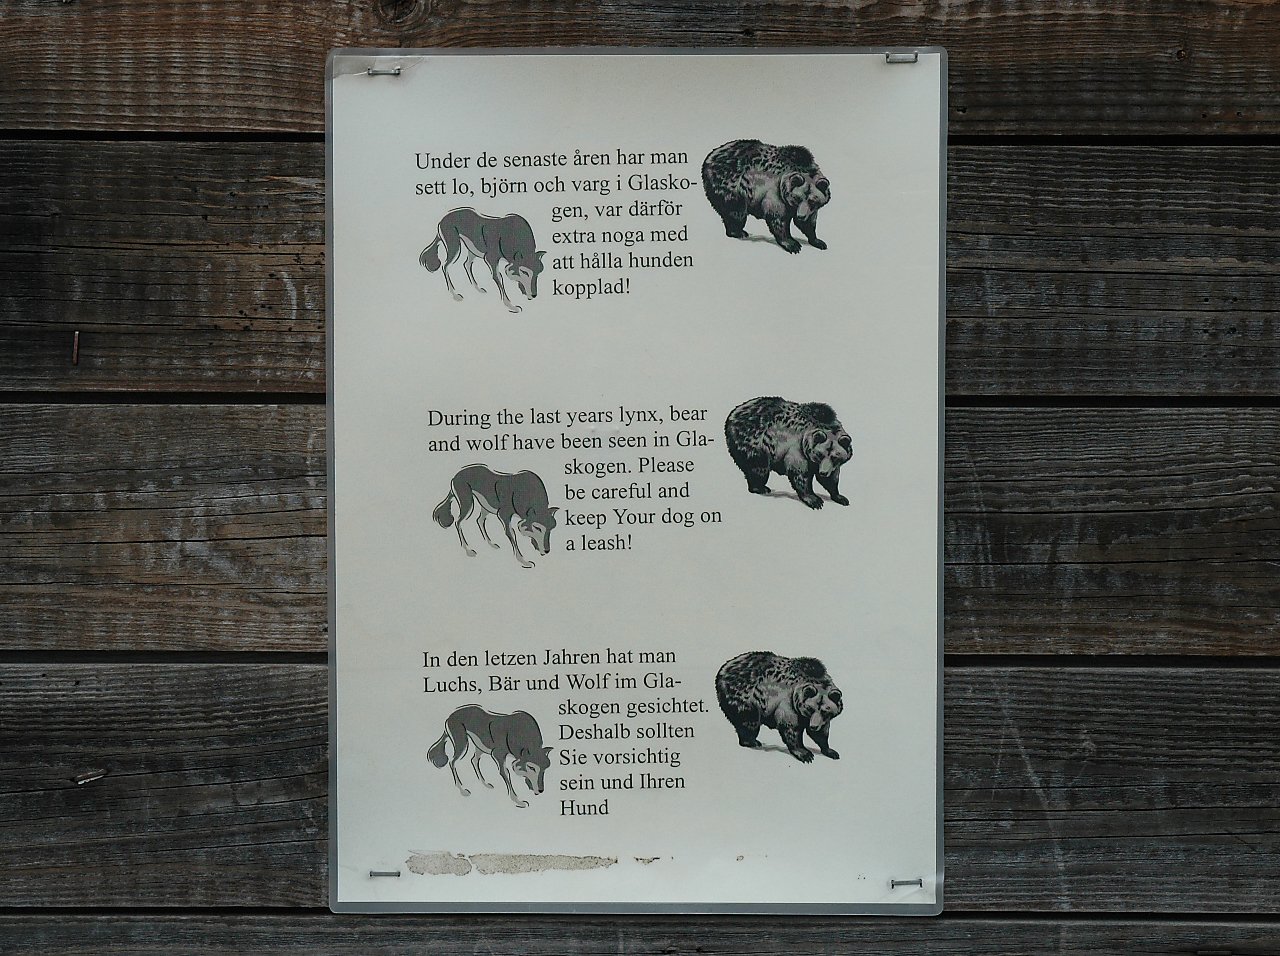 Under de senaste åren har man
sett lo, björn och varg i Glasko-
gen, var därför
extra noga med
att hålla hunden
kopplad!
During the last years lynx, bear
and wolf have been seen in Gla-
skogen. Please
be careful and
keep Your dog on
a leash!
In den letzen Jahren hat man
Luchs, Bär und Wolf im Gla-
skogen gesichtet.
Deshalb sollten
Sie vorsichtig
sein und Ihren
Hund